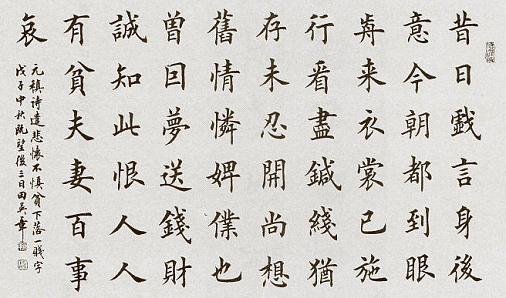 昔日戲言身後
意今朝都到眼
歬来衣裳已施
行看盡鍼綫猶
存未忍開尚想
舊情憐婢僕也
曾因夢送錢財
誠知此恨人人
有貧夫妻百事
哀
元稹詩遣悲懷不慎貧下落一賤字
戊子中秋既望後三日田英章